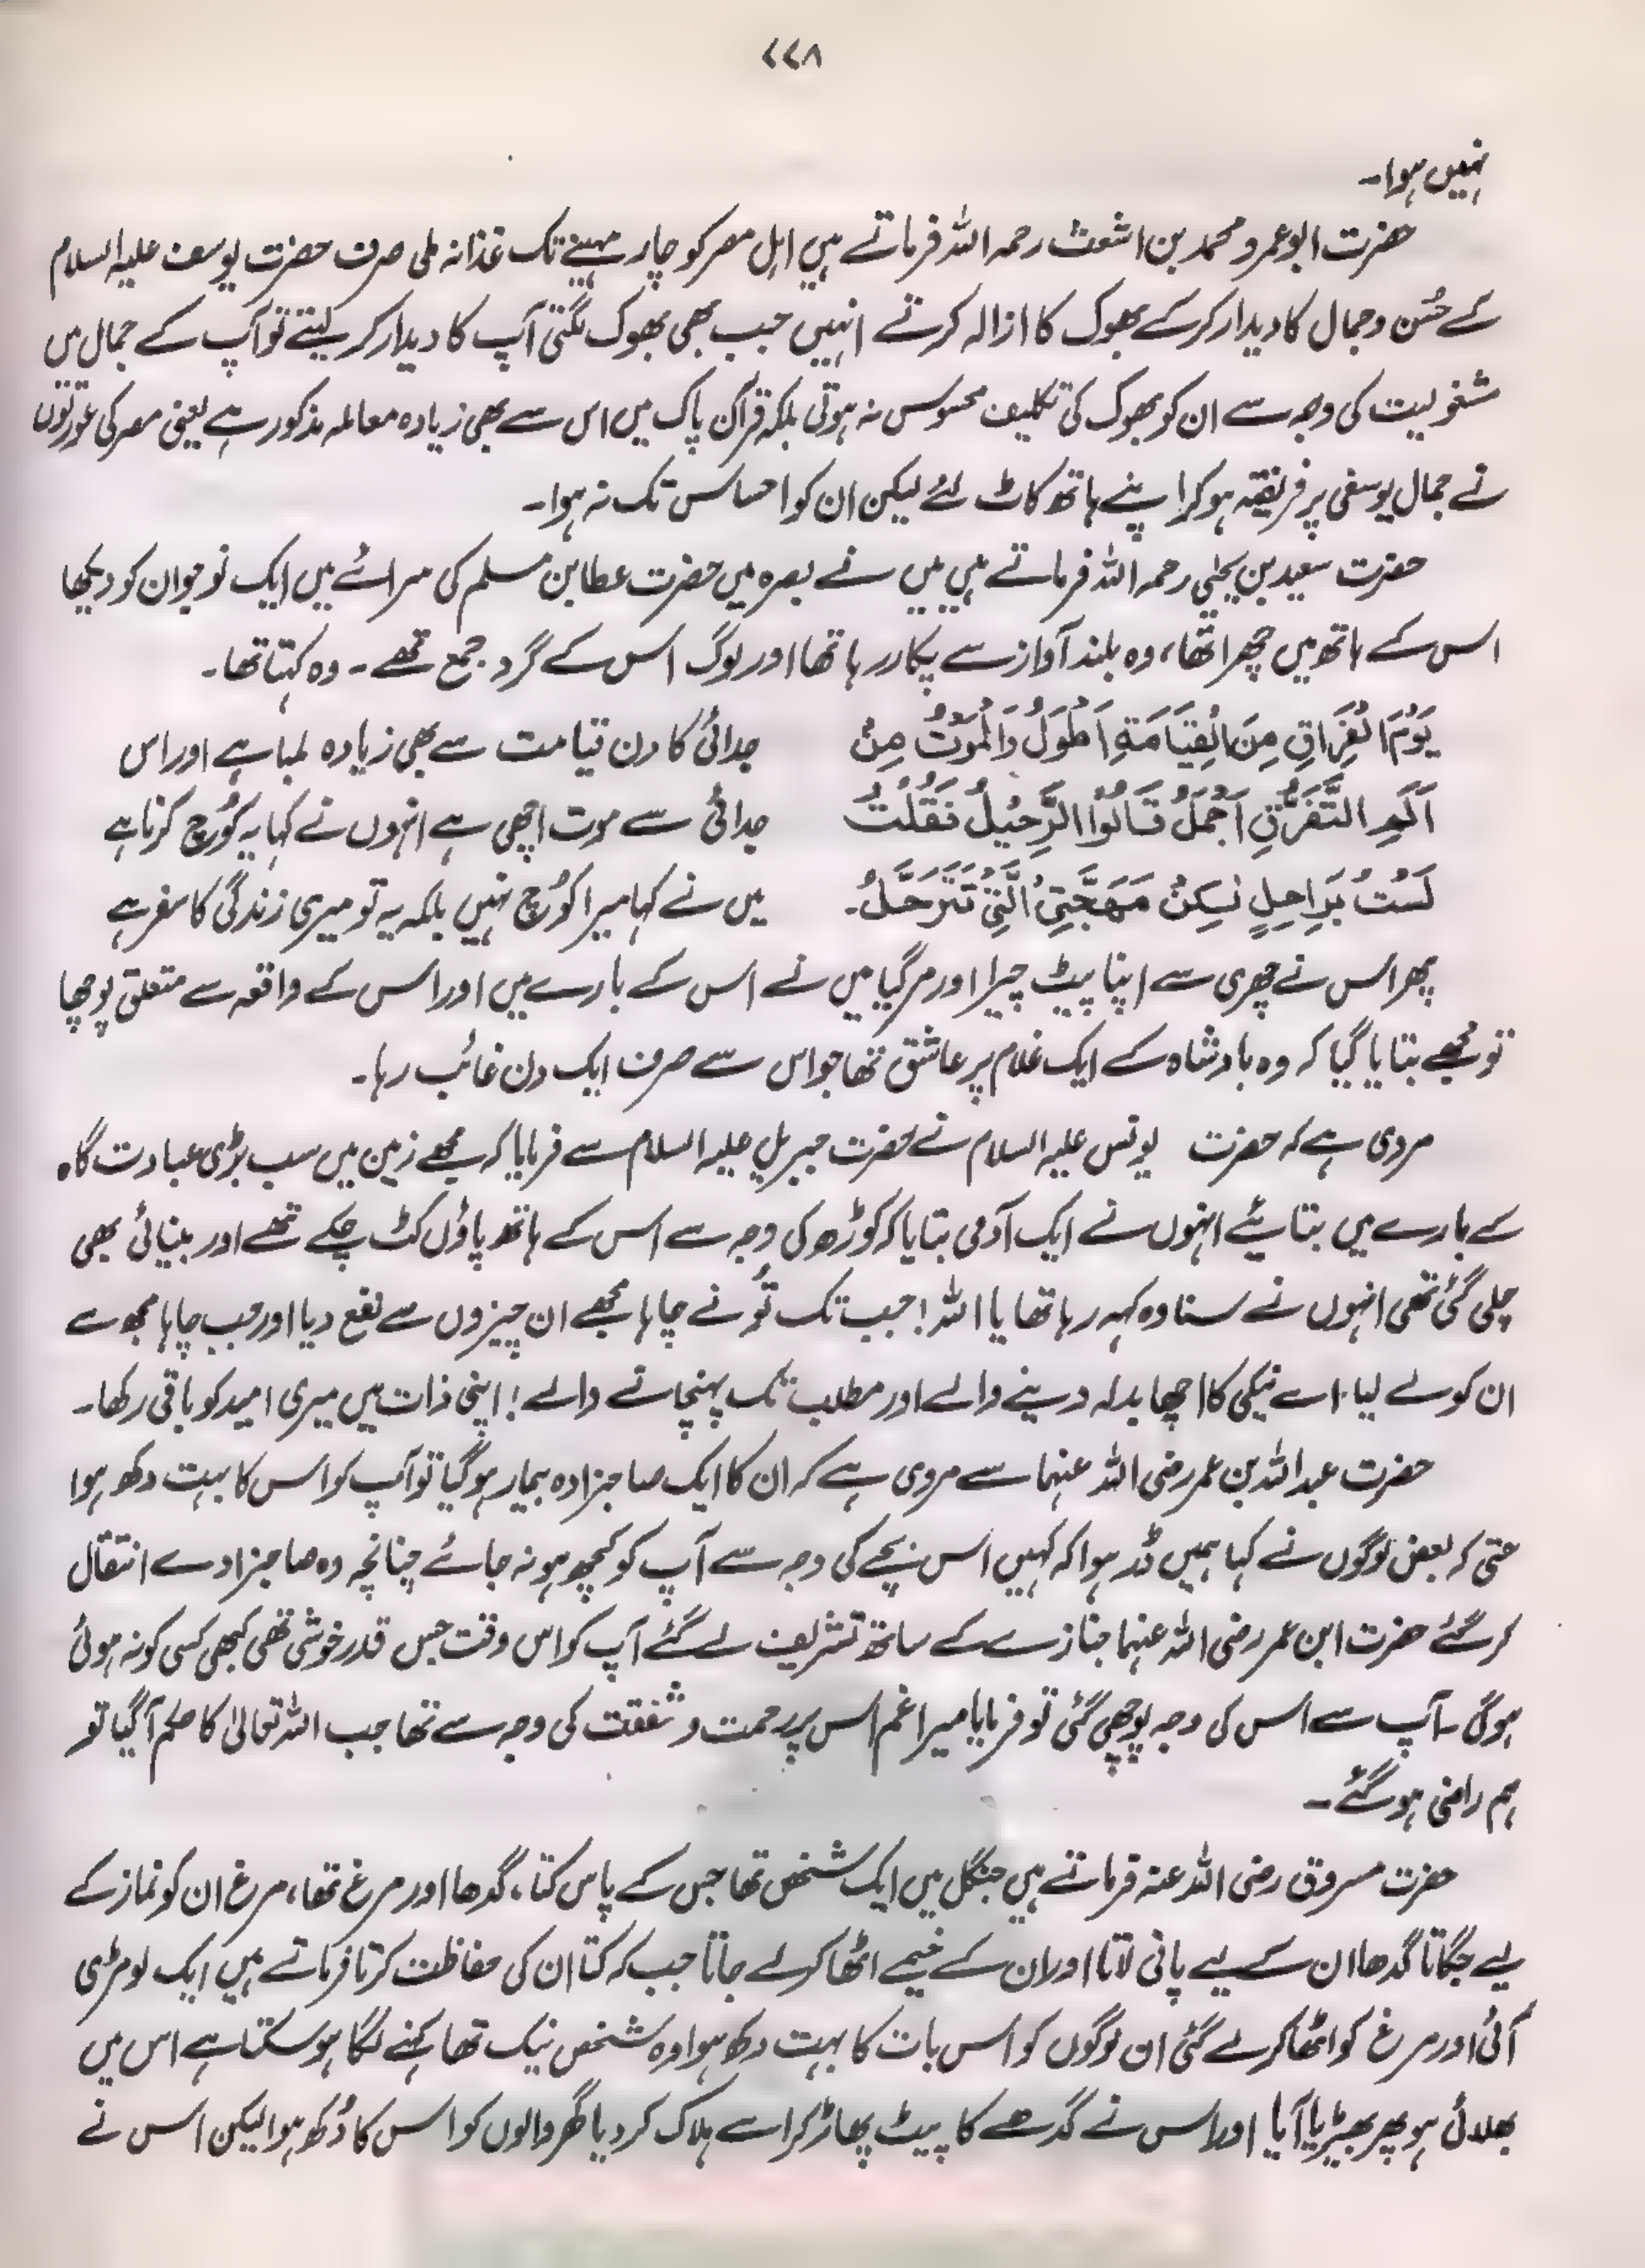 ۷۷۸
نہیں ہوا۔
حضرت ابو عمرو محمد بن اشعث رحمہ اللہ فرماتے ہیں اہل مصر کو چار مہینے تک غذا نہ ملی صرف حضرت یوسف علیہ السلام
کے حُسن و جمال کا دیدار کرکے بھوک کا ازالہ کرتے انہیں جب بھی بھوک لگتی آپ کا دیدار کر لیتے تو آپ کے جمال میں
مشغولیت کی وجہ سے ان کو بھوک کی تکلیف محسوس نہ ہوتی بلکہ قرآن پاک میں اس سے بھی زیادہ معاملہ مذکور ہے یعنی مصر کی عورتوں
نے جمال یوسفی پر فریفتہ ہو کر اپنے ہاتھ کاٹ لئے لیکن ان کو احساس تک نہ ہوا۔
حضرت سعید بن یحیٰی رحمہ اللہ فرماتے ہیں میں نے بصرہ میں حضرت عطا بن مسلم کی سرائے میں ایک نوجوان کو دیکھا
اس کے ہاتھ میں چھرا تھا، وہ بلند آواز سے پکار رہا تھا اور لوگ اس کے گرد جمع تھے۔ وہ کہتا تھا۔
یَوْمَ الْفِرَاقِ مِنَ الْقِیَامَةِ اَطْوَلُ وَالْمَوْتُ مِنْ جدائی کا دن قیامت سے بھی زیادہ لمبا ہے اور اس
اَلَمِ التَّفَرُّقِ اَجْمَلُ قَالُوْا الرَّحِیْلُ فَقُلْتُ جدائی سے موت اچھی ہے انہوں نے کہا یہ کُوچ کرنا ہے
لَسْتُ بِرَاحِلٍ لٰکِنْ مَهَجَّتِیْ الَّتِیْ تَتَرَحَّلُ۔ میں نے کہا میرا کُوچ نہیں بلکہ یہ تو میری زندگی کا سفر ہے
پھر اس نے چھری سے اپنا پیٹ چیرا اور مر گیا میں نے اس کے بارے میں اور اس کے واقعہ سے متعلق پوچھا
تو مجھے بتایا گیا کہ وہ بادشاہ کے ایک غلام پر عاشق تھا جو اس سے صرف ایک دن غائب رہا۔
مروی ہے کہ حضرت یونس علیہ السلام نے حضرت جبریل علیہ السلام سے فرمایا کہ مجھے زمین میں سب بڑی عبادت گاہ
کے بارے میں بتائیے انہوں نے ایک آدمی بتایا کہ کوڑھ کی وجہ سے اس کے ہاتھ پاؤں کٹ چکے تھے اور بینائی بھی
چلی گئی تھی انہوں نے سنا وہ کہہ رہا تھا یا اللہ! جب تک تُو نے چاہا مجھے ان چیزوں سے نفع دیا اور جب چاہا مجھ سے
ان کو لے لیا اے نیکی کا اچھا بدلہ دینے والے اور مطلب تک پہنچانے والے! اپنی ذات میں میری امید کو باقی رکھا۔
حضرت عبداللہ بن عمر رضی اللہ عنہما سے مروی ہے کہ ان کا ایک صاحبزادہ بیمار ہو گیا تو آپ کو اس کا بہت دکھ ہوا
حتی کہ بعض لوگوں نے کہا ہمیں ڈر ہوا کہ کہیں اس بچے کی وجہ سے آپ کو کچھ ہو نہ جائے چنانچہ وہ صاحبزادے انتقال
کر گئے حضرت ابن عمر رضی اللہ عنہما جنازے کے ساتھ تشریف لے گئے آپ کو اس وقت جس قدر خوشی تھی کبھی کسی کو نہ ہوئی
ہوگی۔ آپ سے اس کی وجہ پوچھی گئی تو فرمایا میرا غم اس پر رحمت و شفقت کی وجہ سے تھا جب اللہ تعالیٰ کا حکم آ گیا تو
ہم راضی ہو گئے۔
حضرت مسروق رضی اللہ عنہ فرماتے ہیں جنگل میں ایک شخص تھا جس کے پاس کتا، گدھا اور مرغ تھا، مرغ ان کو نماز کے
لیے جگاتا گدھا ان کے لیے پانی لاتا اور ان کے خیمے اٹھا کر لے جاتا جب کہ کتا ان کی حفاظت کرتا فرماتے ہیں ایک لومڑی
آئی اور مرغ کو اٹھا کر لے گئی ان لوگوں کو اس بات کا بہت دکھ ہوا وہ شخص نیک تھا کہنے لگا ہو سکتا ہے اس میں
بھلائی ہو پھر بھیڑیا آیا اور اس نے گدھے کا پیٹ پھاڑ کر اسے ہلاک کر دیا گھر والوں کو اس کا دُکھ ہوا لیکن اس نے